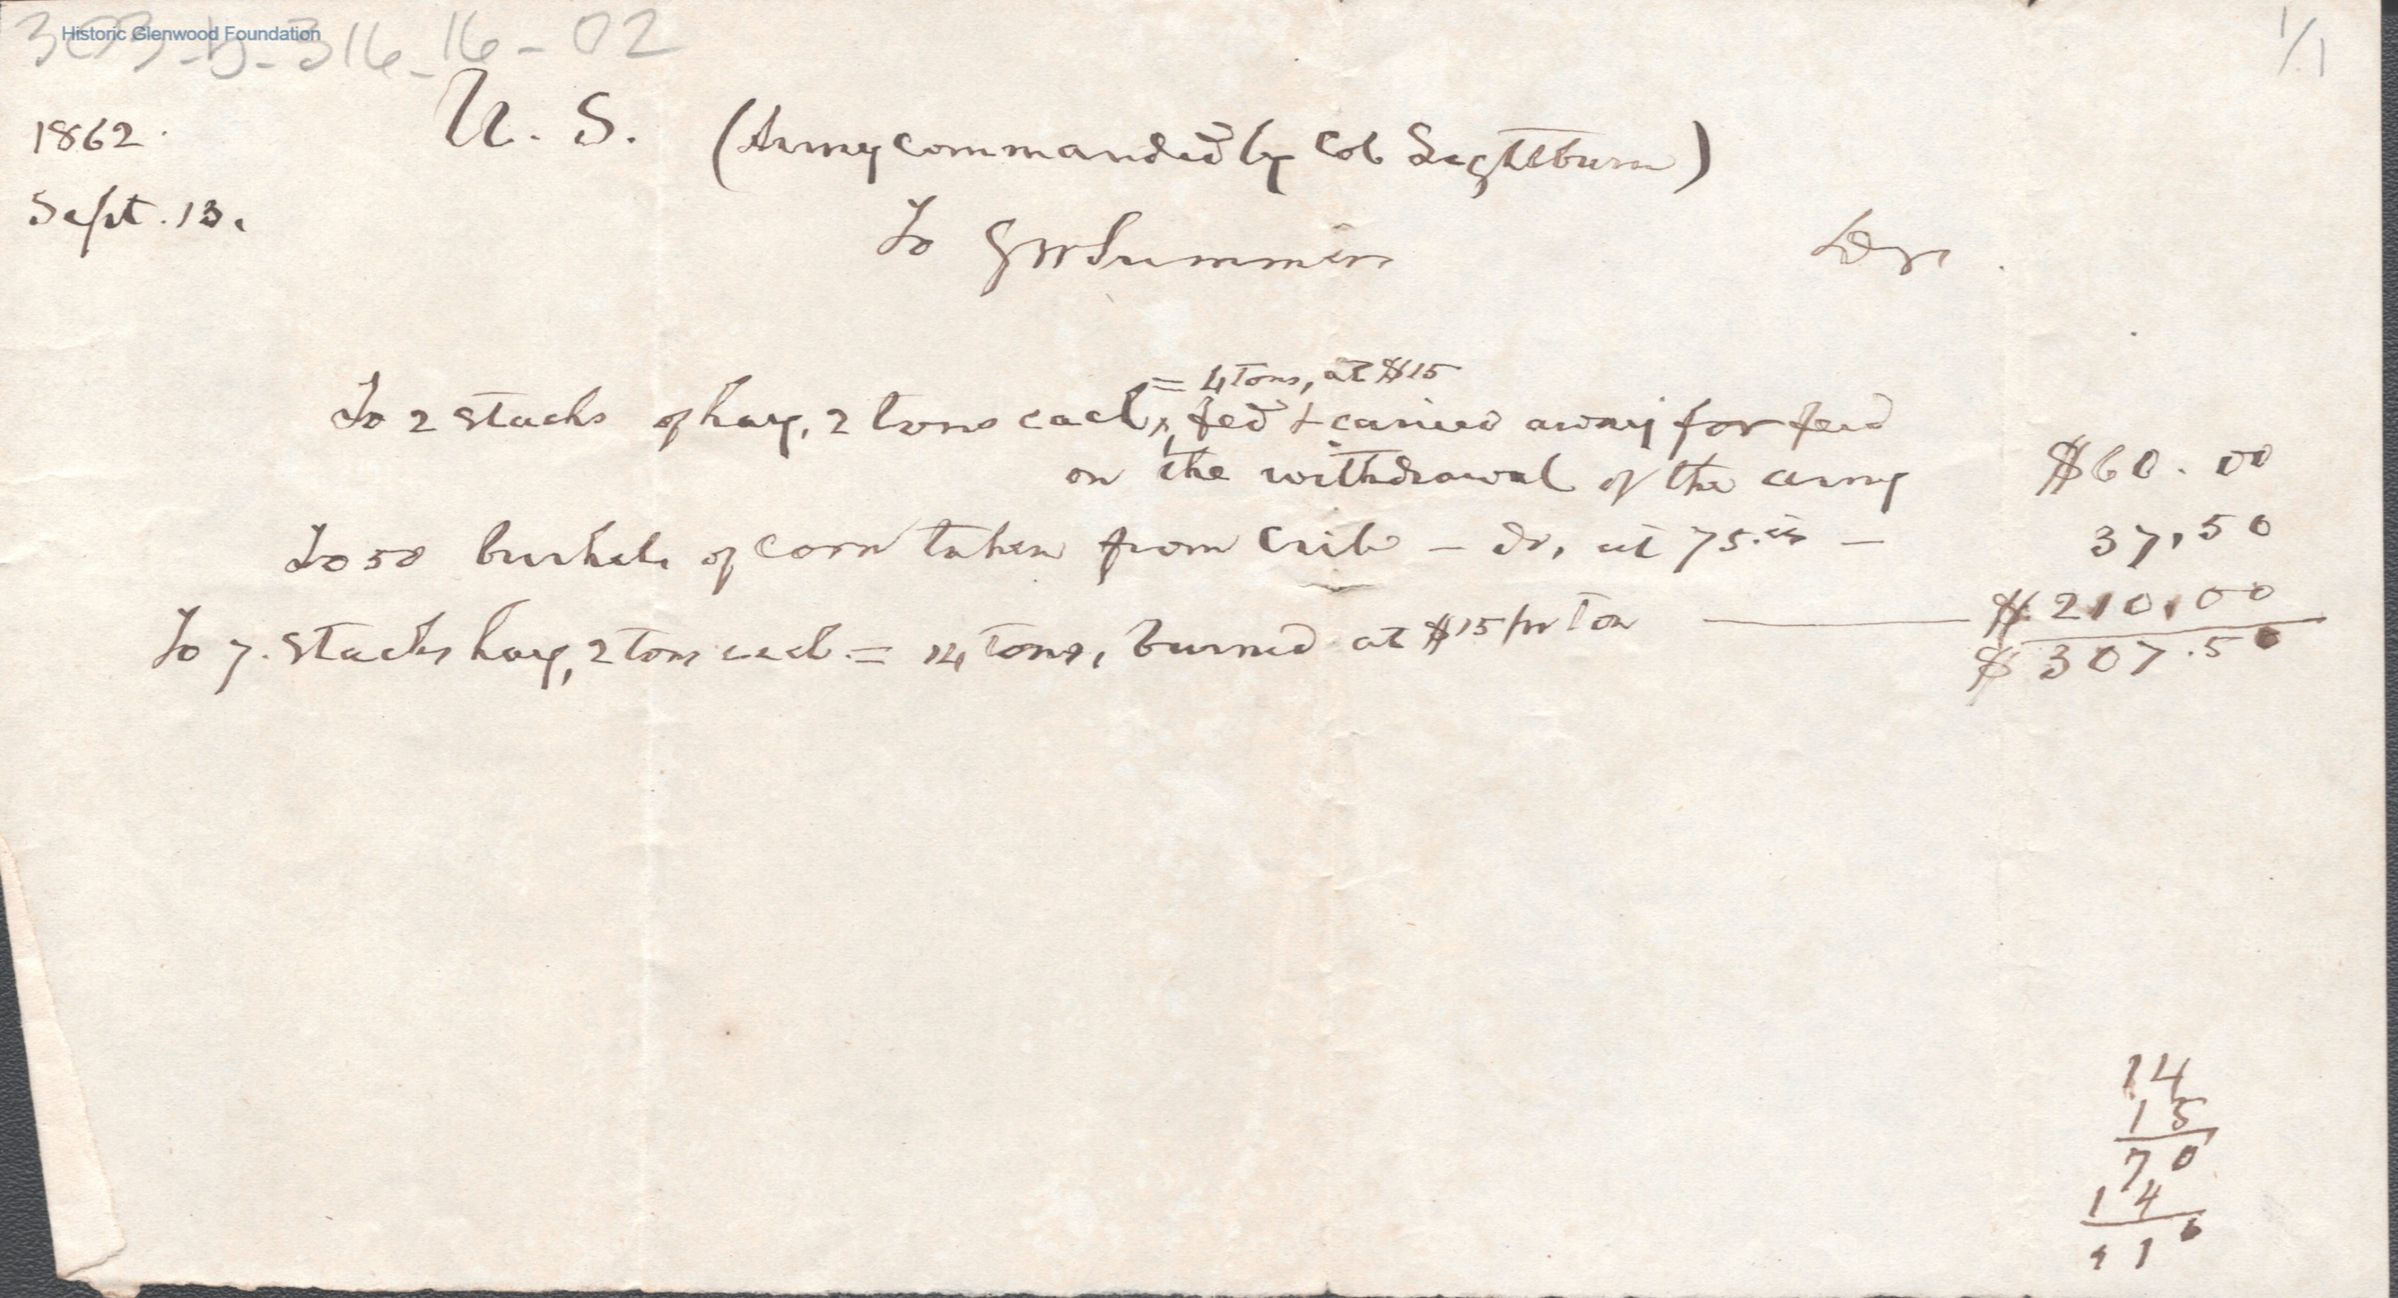 Historic Glenwood Foundation
303-b-316-16-02
1/1
1862.
U. S. (Army commanded by Col Lightburn)
Sept. 13.
To G W Summers Dr.
= 4 Tons, at $15
To 2 stacks of hay, 2 tons each, fed & carried away for feed
on the withdrawal of the army $60.00
To 50 bushels of corn taken from crib - do, at 75.cts - 37,50
To 7. stacks hay, 2 tons each = 14 tons, burned at $15 pr Ton $210,00
$307.50
14
15
70
14
210